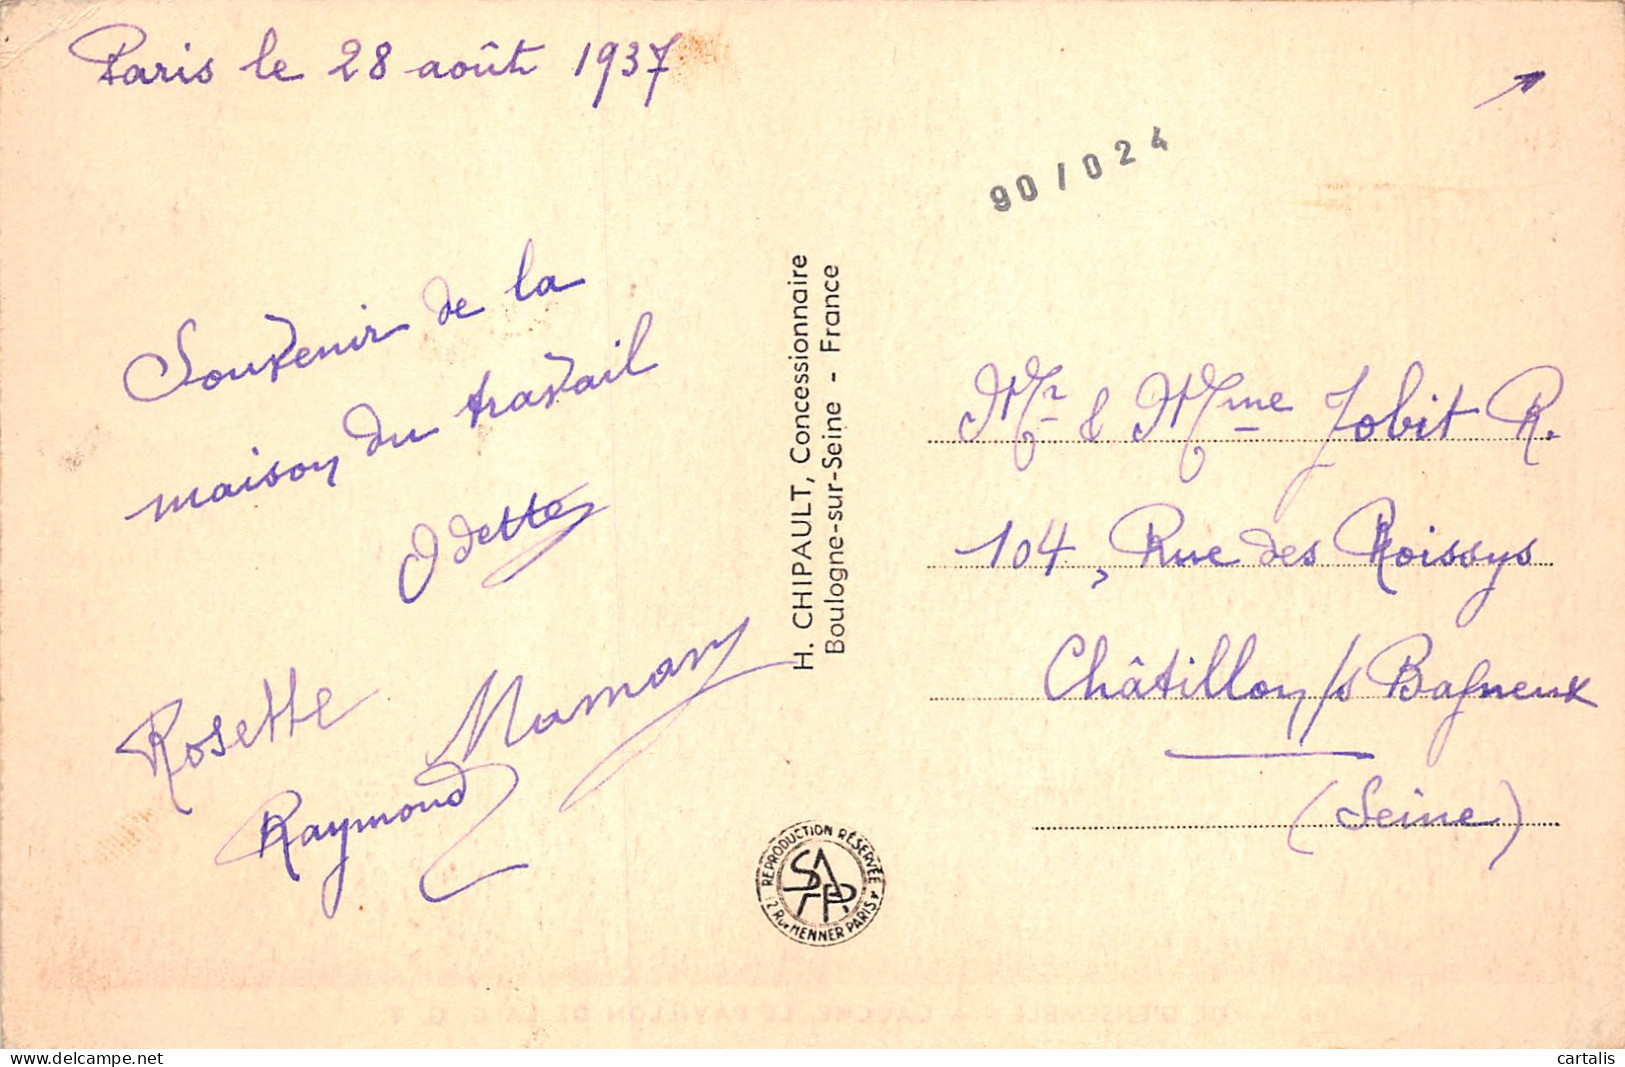 Paris le 28 août 1937
90/024
Souvenir de la
maison du travail
Odette
Rosette
Maman
Raymond
H. CHIPAULT, Concessionnaire
Boulogne-sur-Seine - France
Mr & Mme Jobit R.
104, Rue des Roissys
Châtillon s/s Bagneux
(Seine)
REPRODUCTION RÉSERVÉE
SAPR
12 Rue HENNER PARIS
delcampe.net
cartalis